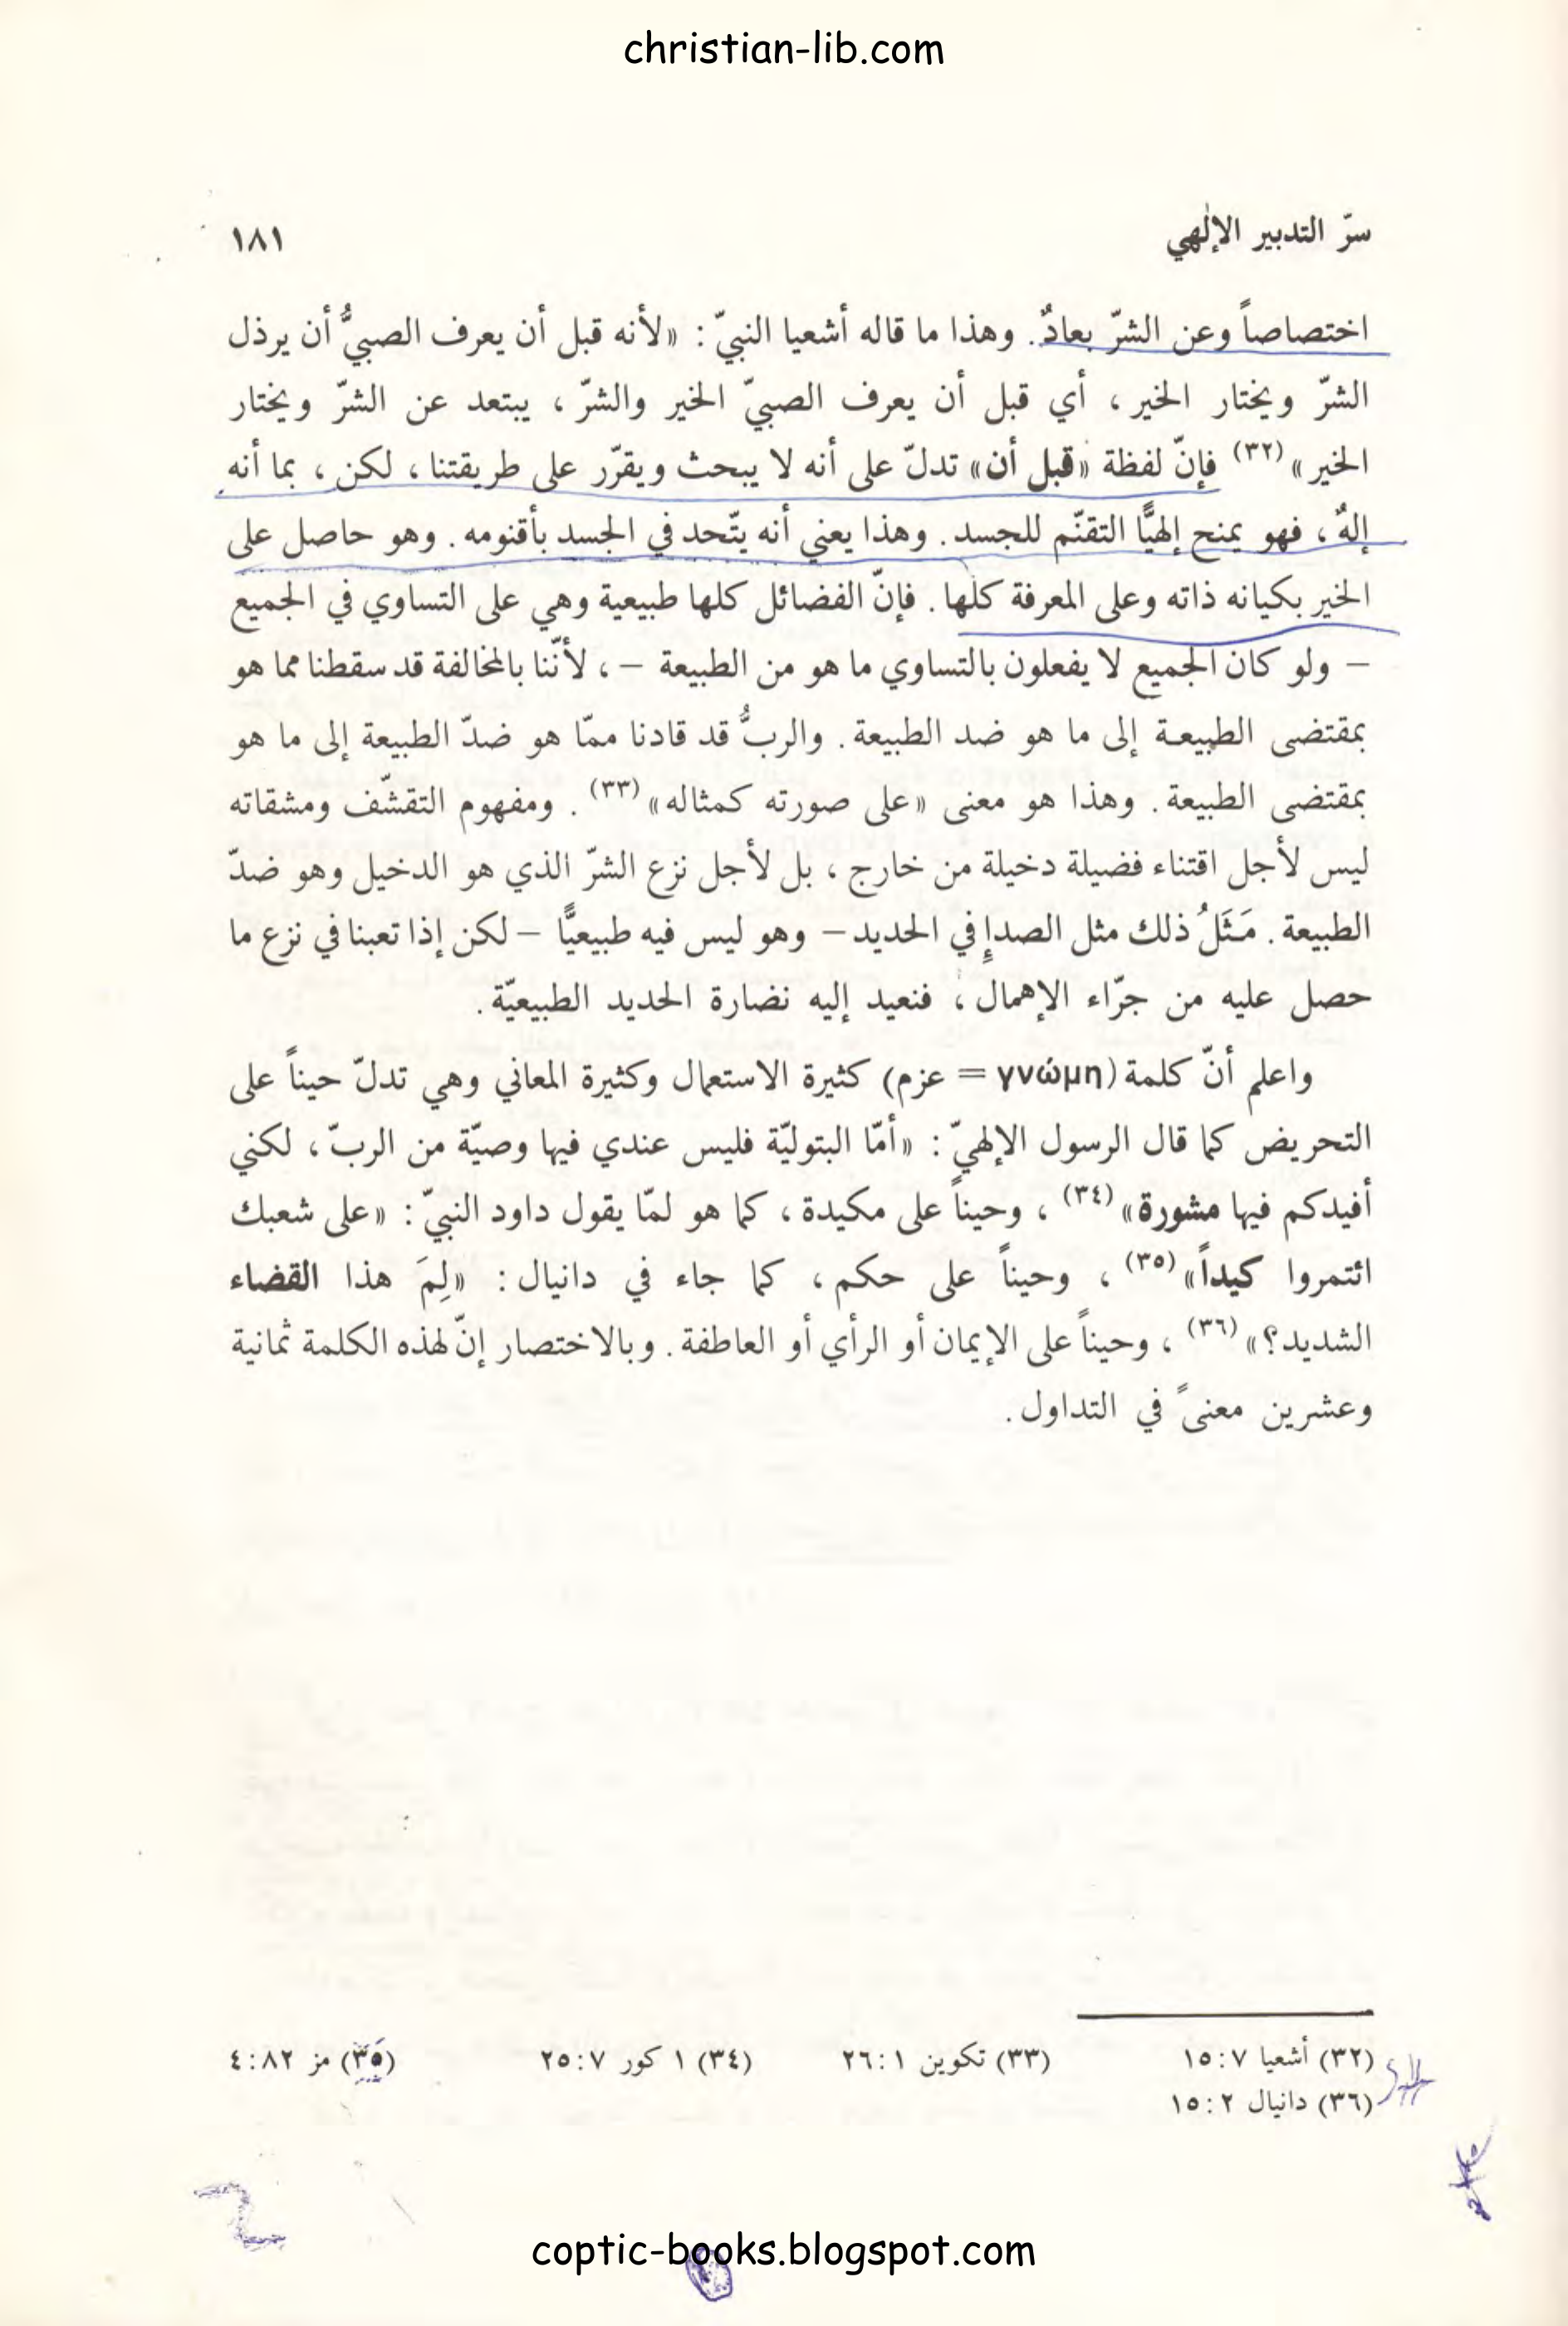 christian-lib.com
سرّ التدبير الإلٰهي ١٨١
اختصاصاً وعن الشرّ بعادٌ. وهذا ما قاله أشعيا النبيّ : «لأنه قبل أن يعرف الصبيُّ أن يرذل
الشرّ ويختار الخير ، أي قبل أن يعرف الصبيّ الخير والشرّ ، يبتعد عن الشرّ ويختار
الخير»(٣٢) فإنّ لفظة «قبل أن» تدلّ على أنه لا يبحث ويقرّر على طريقتنا ، لكن ، بما أنه
إلهٌ ، فهو يمنح إلهيًّا التقنّم للجسد. وهذا يعني أنه يتّحد في الجسد بأقنومه. وهو حاصل على
الخير بكيانه ذاته وعلى المعرفة كلّها. فإنّ الفضائل كلها طبيعية وهي على التساوي في الجميع
– ولو كان الجميع لا يفعلون بالتساوي ما هو من الطبيعة – ، لأنّنا بالمخالفة قد سقطنا مما هو
بمقتضى الطبيعة إلى ما هو ضد الطبيعة. والربُّ قد قادنا ممّا هو ضدّ الطبيعة إلى ما هو
بمقتضى الطبيعة. وهذا هو معنى «على صورته كمثاله»(٣٣) . ومفهوم التقشّف ومشقاته
ليس لأجل اقتناء فضيلة دخيلة من خارج ، بل لأجل نزع الشرّ الذي هو الدخيل وهو ضدّ
الطبيعة. مَثَلُ ذلك مثل الصدإِ في الحديد – وهو ليس فيه طبيعيًّا – لكن إذا تعبنا في نزع ما
حصل عليه من جرّاء الإهمال ، فنعيد إليه نضارة الحديد الطبيعيّة.
واعلم أنّ كلمة (γνώμη = عزم) كثيرة الاستعمال وكثيرة المعاني وهي تدلّ حيناً على
التحريض كما قال الرسول الإلهيّ : «أمّا البتوليّة فليس عندي فيها وصيّة من الربّ ، لكني
أفيدكم فيها مشورة»(٣٤) ، وحيناً على مكيدة ، كما هو لمّا يقول داود النبيّ : «على شعبك
ائتمروا كيداً»(٣٥) ، وحيناً على حكم ، كما جاء في دانيال : «لِمَ هذا القضاء
الشديد؟»(٣٦) ، وحيناً على الإيمان أو الرأي أو العاطفة. وبالاختصار إنّ لهذه الكلمة ثمانية
وعشرين معنىً في التداول.
(٣٢) أشعيا ٧:١٥ (٣٣) تكوين ١:٢٦ (٣٤) ١ كور ٧:٢٥ (٣٥) مز ٨٢:٤
(٣٦) دانيال ٢:١٥
coptic-books.blogspot.com